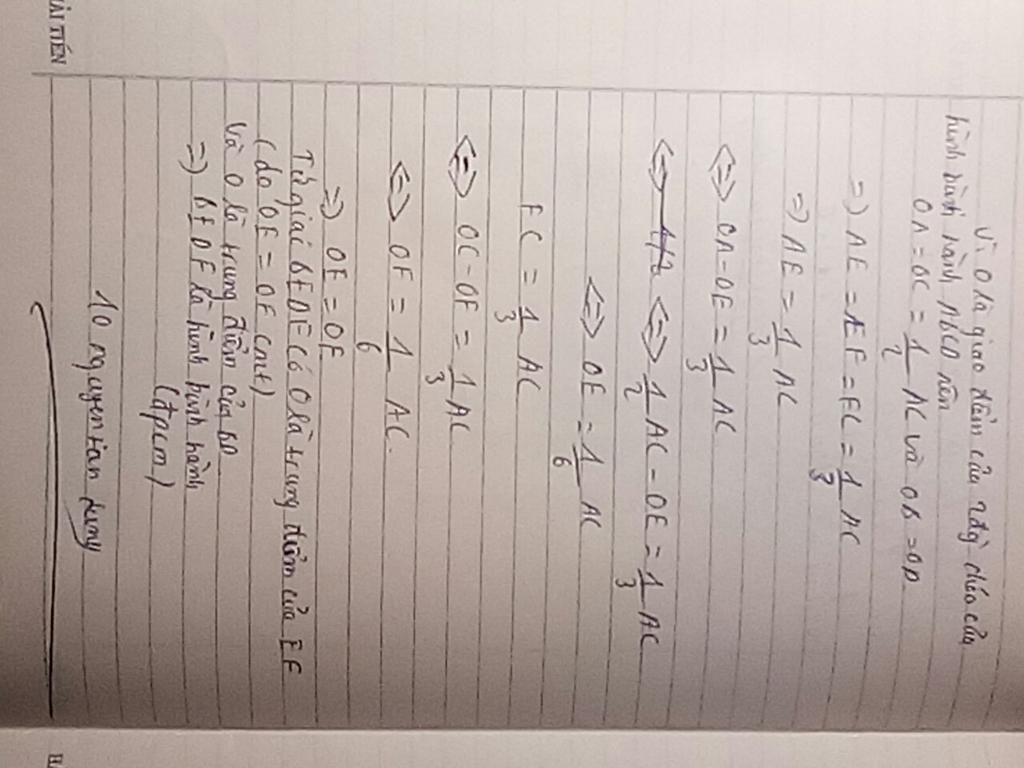 Vì O là giao điểm của 2 đg chéo của
hình bình hành ABCD nên
OA = OC = 1/2 AC và OB = OD
=) AE = EF = FC = 1/3 AC
=) AE = 1/3 AC
<=> OA - OE = 1/3 AC
<=> <=> 1/2 AC - OE = 1/3 AC
<=> OE = 1/6 AC
FC = 1/3 AC
<=> OC - OF = 1/3 AC
<=> OF = 1/6 AC.
=) OE = OF
Tứ giác BEDF có O là trung điểm của EF
(do OE = OF cmt)
và O là trung điểm của BD
=) BEDF là hình bình hành
(đpcm)
10 nguyen tian dung
HẢI TIẾN